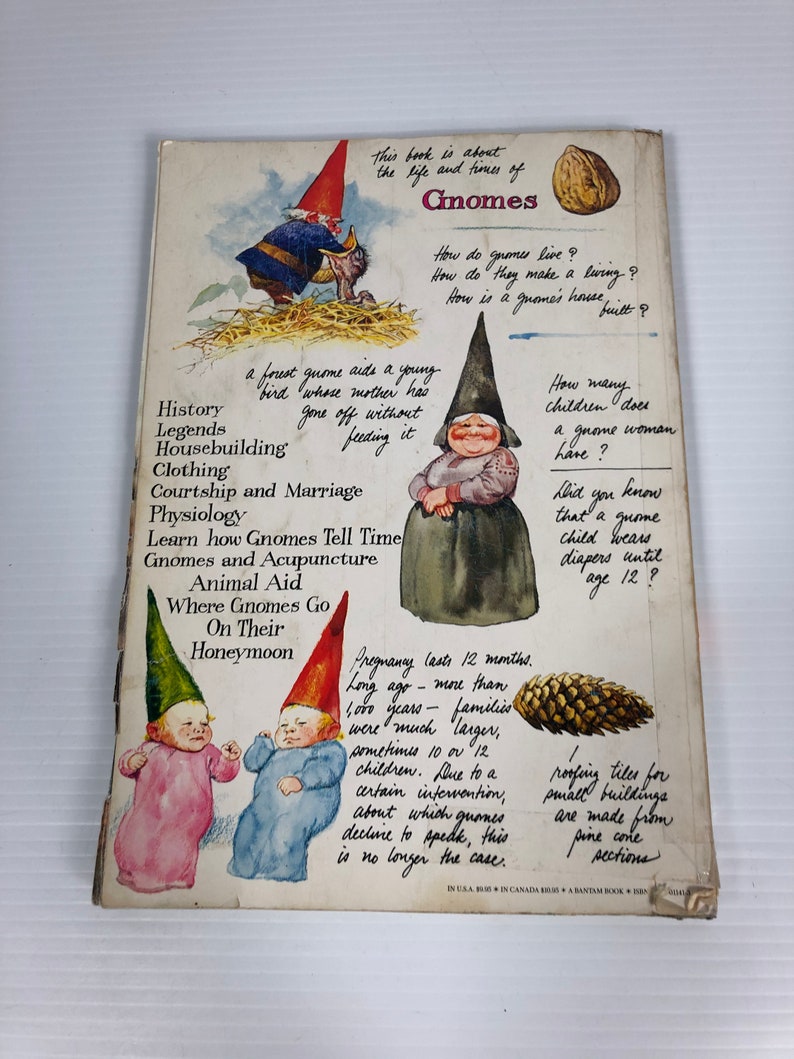 This book is about
the life and times of
Gnomes
How do gnomes live?
How do they make a living?
How is a gnome's house
built?
a forest gnome aids a young
bird whose mother has
gone off without
feeding it
History
Legends
Housebuilding
Clothing
Courtship and Marriage
Physiology
Learn how Gnomes Tell Time
Gnomes and Acupuncture
Animal Aid
Where Gnomes Go
On Their
Honeymoon
How many
children does
a gnome woman
have?
Did you know
that a gnome
child wears
diapers until
age 12?
Pregnancy lasts 12 months.
Long ago – more than
1,000 years – families
were much larger,
sometimes 10 or 12
children. Due to a
certain intervention,
about which gnomes
decline to speak, this
is no longer the case.
roofing tiles for
small buildings
are made from
pine cone
sections
IN U.S.A. $9.95 * IN CANADA $10.95 * A BANTAM BOOK * ISBN 01141-3